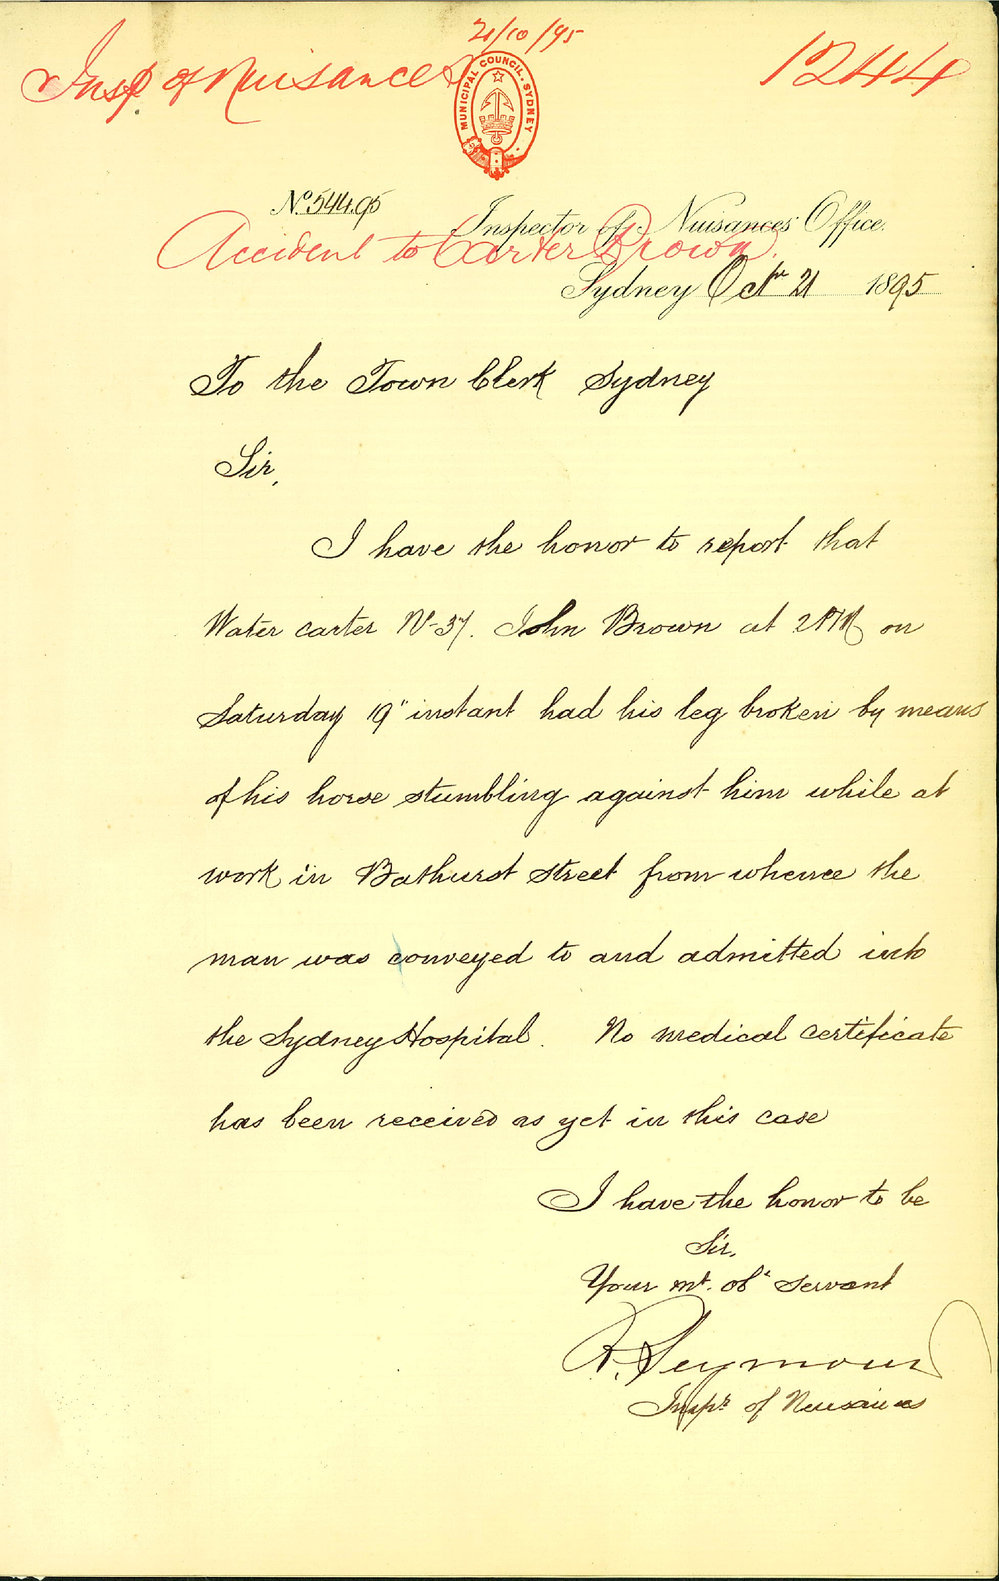 21/10/95
Insp. of Nuisances
1244
MUNICIPAL COUNCIL. SYDNEY.
No. 544.95
Inspector of Nuisances' Office.
Accident to Carter Brown.
Sydney Octr 21 1895
To the Town Clerk Sydney
Sir,
I have the honor to report that
Water carter No 37. John Brown at 2 PM on
Saturday 19" instant had his leg broken by means
of his horse stumbling against him while at
work in Bathurst Street from whence the
man was conveyed to and admitted into
the Sydney Hospital. No medical certificate
has been received as yet in this case
I have the honor to be
Sir,
Your mt. obt servant
R. Seymour
Inspr of Nuisances